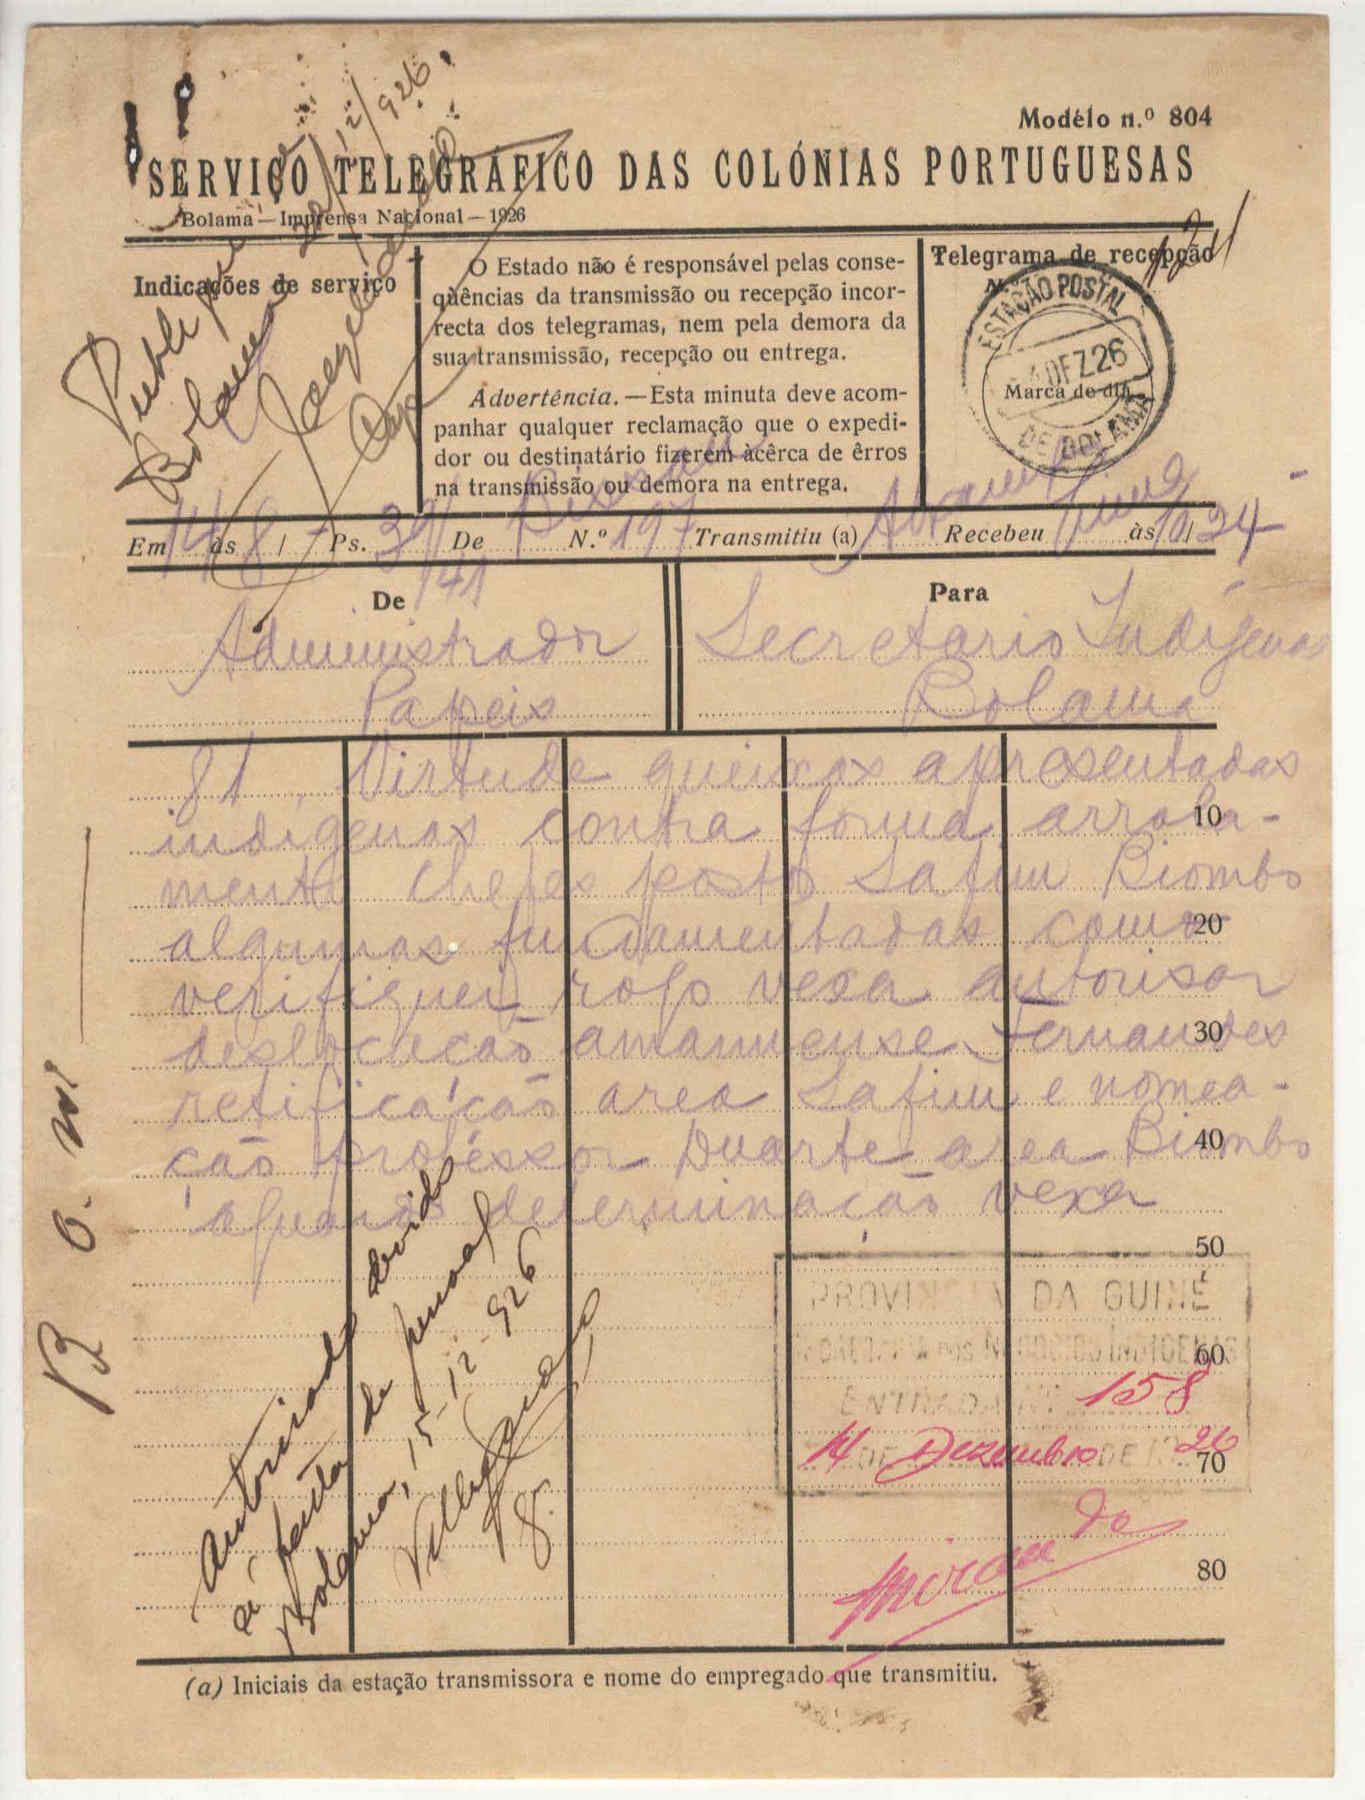 Modélo n.º 804
SERVIÇO TELEGRÁFICO DAS COLÓNIAS PORTUGUESAS
Bolama — Imprensa Nacional — 1926
Indicações de serviço
O Estado não é responsável pelas conse-
qüências da transmissão ou recepção incor-
recta dos telegramas, nem pela demora da
sua transmissão, recepção ou entrega.
Advertência. — Esta minuta deve acom-
panhar qualquer reclamação que o expedi-
dor ou destinatário fizerem àcêrca de êrros
na transmissão ou demora na entrega.
Telegrama de recepção
ESTAÇÃO POSTAL
DEZ 26
Marca do dia
DE BOLAMA
Bolama 12/926
Em 14 às 8 / Ps. 39/41 De Bissau N.º 197 Transmitiu (a) Recebeu às 10/24
De
Para
Administrador
Papeis
Secretario Indígenas
Bolama
81, Virtude queixas apresentadas
indigenas contra forma arrola-
10
mento chefes posto Safim Biombo
algumas fundamentadas como
20
verifiquei rogo vexa autorisar
deslocacão amanuense Fernandes
30
retificação area Safim e nomea-
ção professor Duarte area Biombo
40
aguardo determinação vexa
50
60
70
80
PROVINCIA DA GUINÉ
NEGOCIOS INDIGENAS
ENTRADA Nº 158
14 DE Dezembro DE 1926
Miranda
B. O. Nº
Autorizado devido
á falta de pessoal
Bolama, 15-12-926
(a) Iniciais da estação transmissora e nome do empregado que transmitiu.